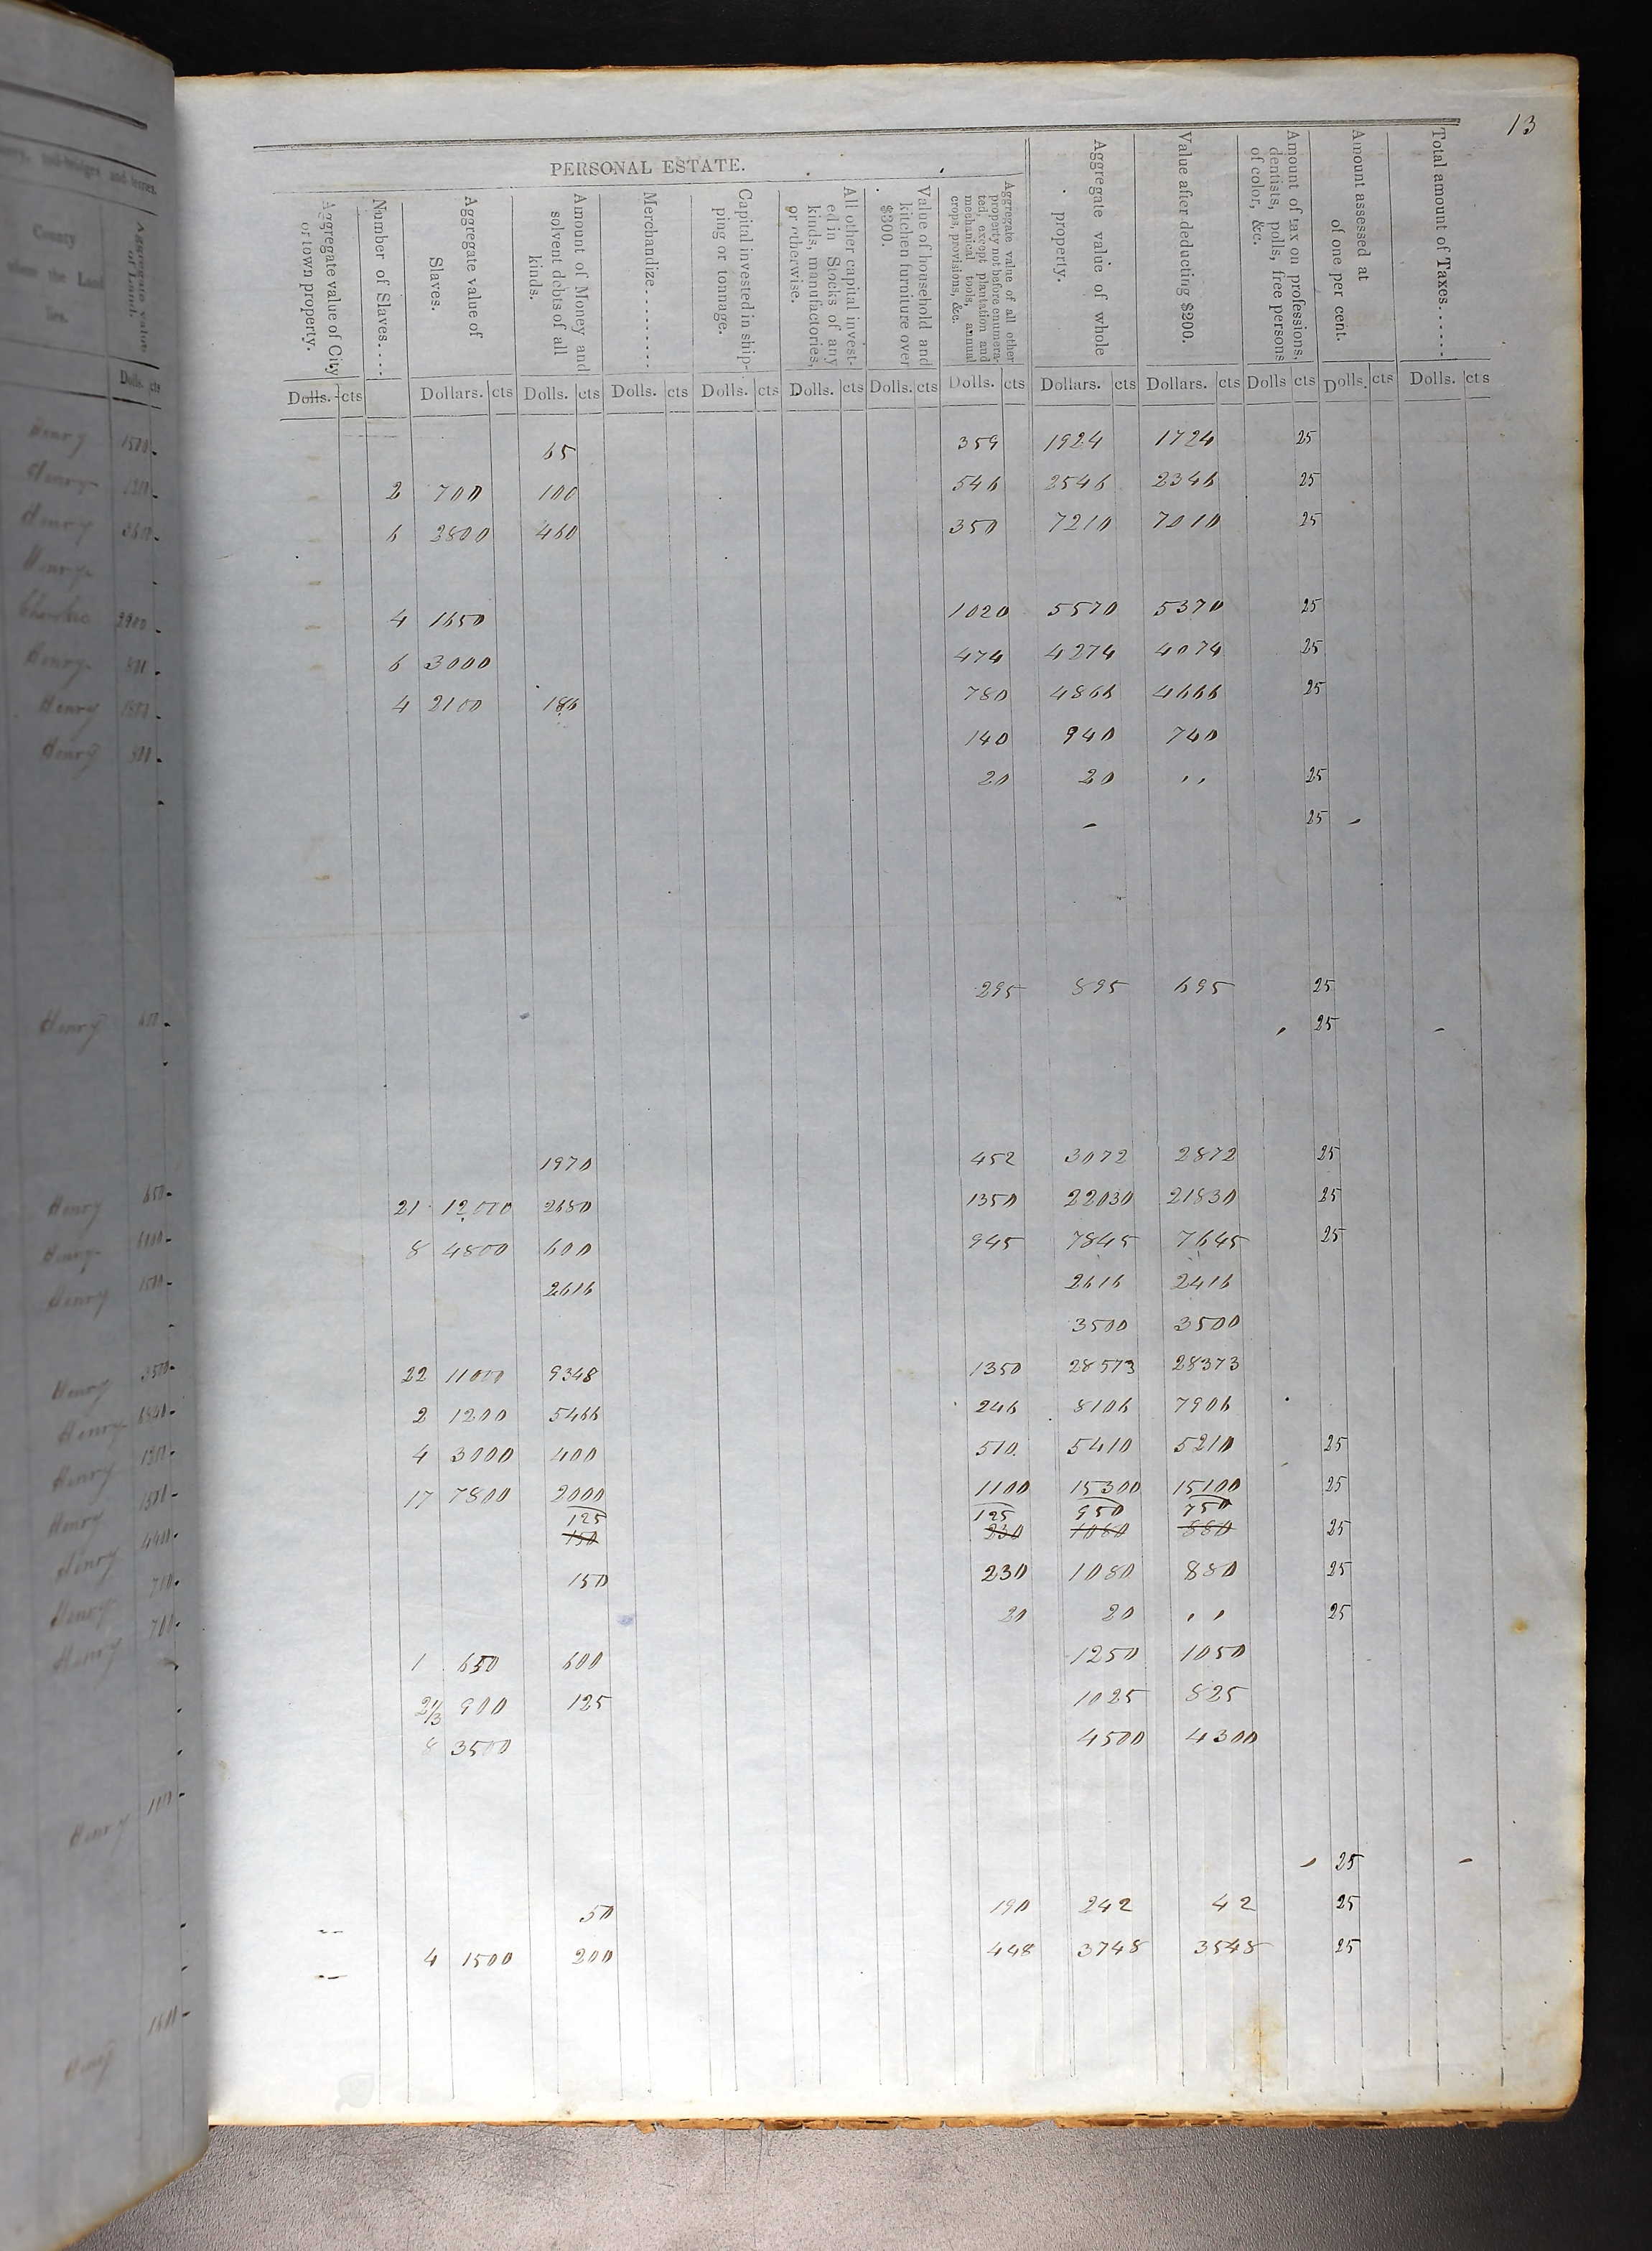 13
PERSONAL ESTATE.
County where the Land lies.
Aggregate value of Land.
Aggregate value of City or town property.
Number of Slaves....
Aggregate value of Slaves.
Amount of Money and solvent debts of all kinds.
Merchandize.........
Capital invested in shipping or tonnage.
All other capital invested in Stocks of any kinds, manufactories, or otherwise.
Value of household and kitchen furniture over $300.
Aggregate value of all other property not before enumerated, except plantation and mechanical tools, annual crops, provisions, &c.
Aggregate value of whole property.
Value after deducting $200.
Amount of tax on professions, dentists, polls, free persons of color, &c.
Amount assessed at of one per cent.
Total amount of Taxes......
Dolls. cts Dolls. cts Dollars. cts Dolls. cts Dolls. cts Dolls. cts Dolls. cts Dolls. cts Dolls. cts Dollars. cts Dollars. cts Dolls cts Dolls. cts Dolls. cts
Henry 65 359 1924 1724 25
Henry 2 700 100 546 2546 2346 25
Henry 6 2800 460 350 7210 7010 25
Henry
4 1650 1020 5570 5370 25
Henry 6 3000 474 4274 4074 25
Henry 4 2100 186 780 4866 4666 25
Henry 140 940 740
20 20 ,, 25
- 25 -
Henry 295 895 695 25
25 -
Henry 650 1970 452 3072 2872 25
Henry 21 12000 2680 1350 22030 21830 25
Henry 8 4800 600 945 7845 7645 25
2616 2616 2416
Henry 3500 3500 3500
Henry 22 11000 9348 1350 28573 28373
Henry 2 1200 5466 246 8106 7906
Henry 4 3000 400 510 5410 5210 25
Henry 17 7800 2000 1100 15300 15100 25
125 125 950 750
Henry 150 230 1080 880 25
Henry 150 230 1080 880 25
20 20 ,, 25
1 650 600 1250 1050
2 1/3 900 125 1025 825
Henry 8 3500 4500 4300
25 -
50 190 242 42 25
4 1500 200 448 3748 3548 25